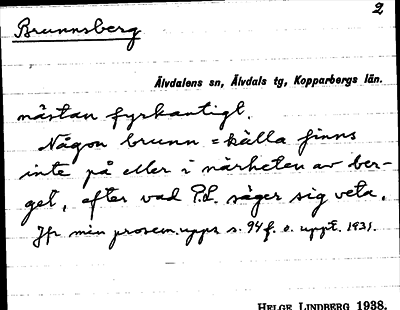 2
Brunnsberg
Älvdalens sn, Älvdals tg, Kopparbergs län.
nästan fyrkantigt.
Någon brunn = källa finns
inte på eller i närheten av ber-
get, efter vad P.L. säger sig veta.
Jfr min prosem.upps s. 94 f. o. uppt. 1931.
HELGE LINDBERG 1938.